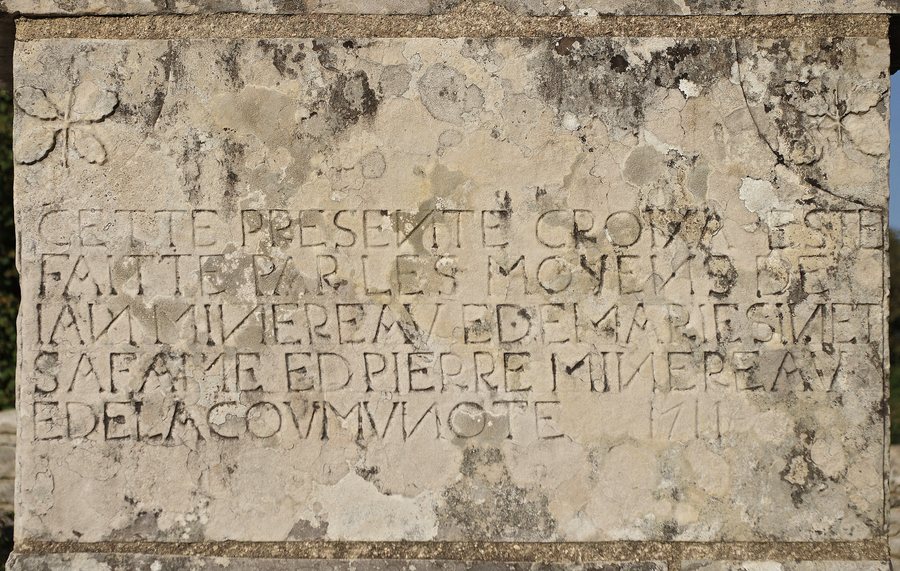 CETTE PRESENTE CROIX A ESTE
FAITTE PAR LES MOYENS DE
IAN MINEREAV ED E MARIE SINET
SA FAME ED PIERRE MINEREAV
E DE LA COVMVNOTE